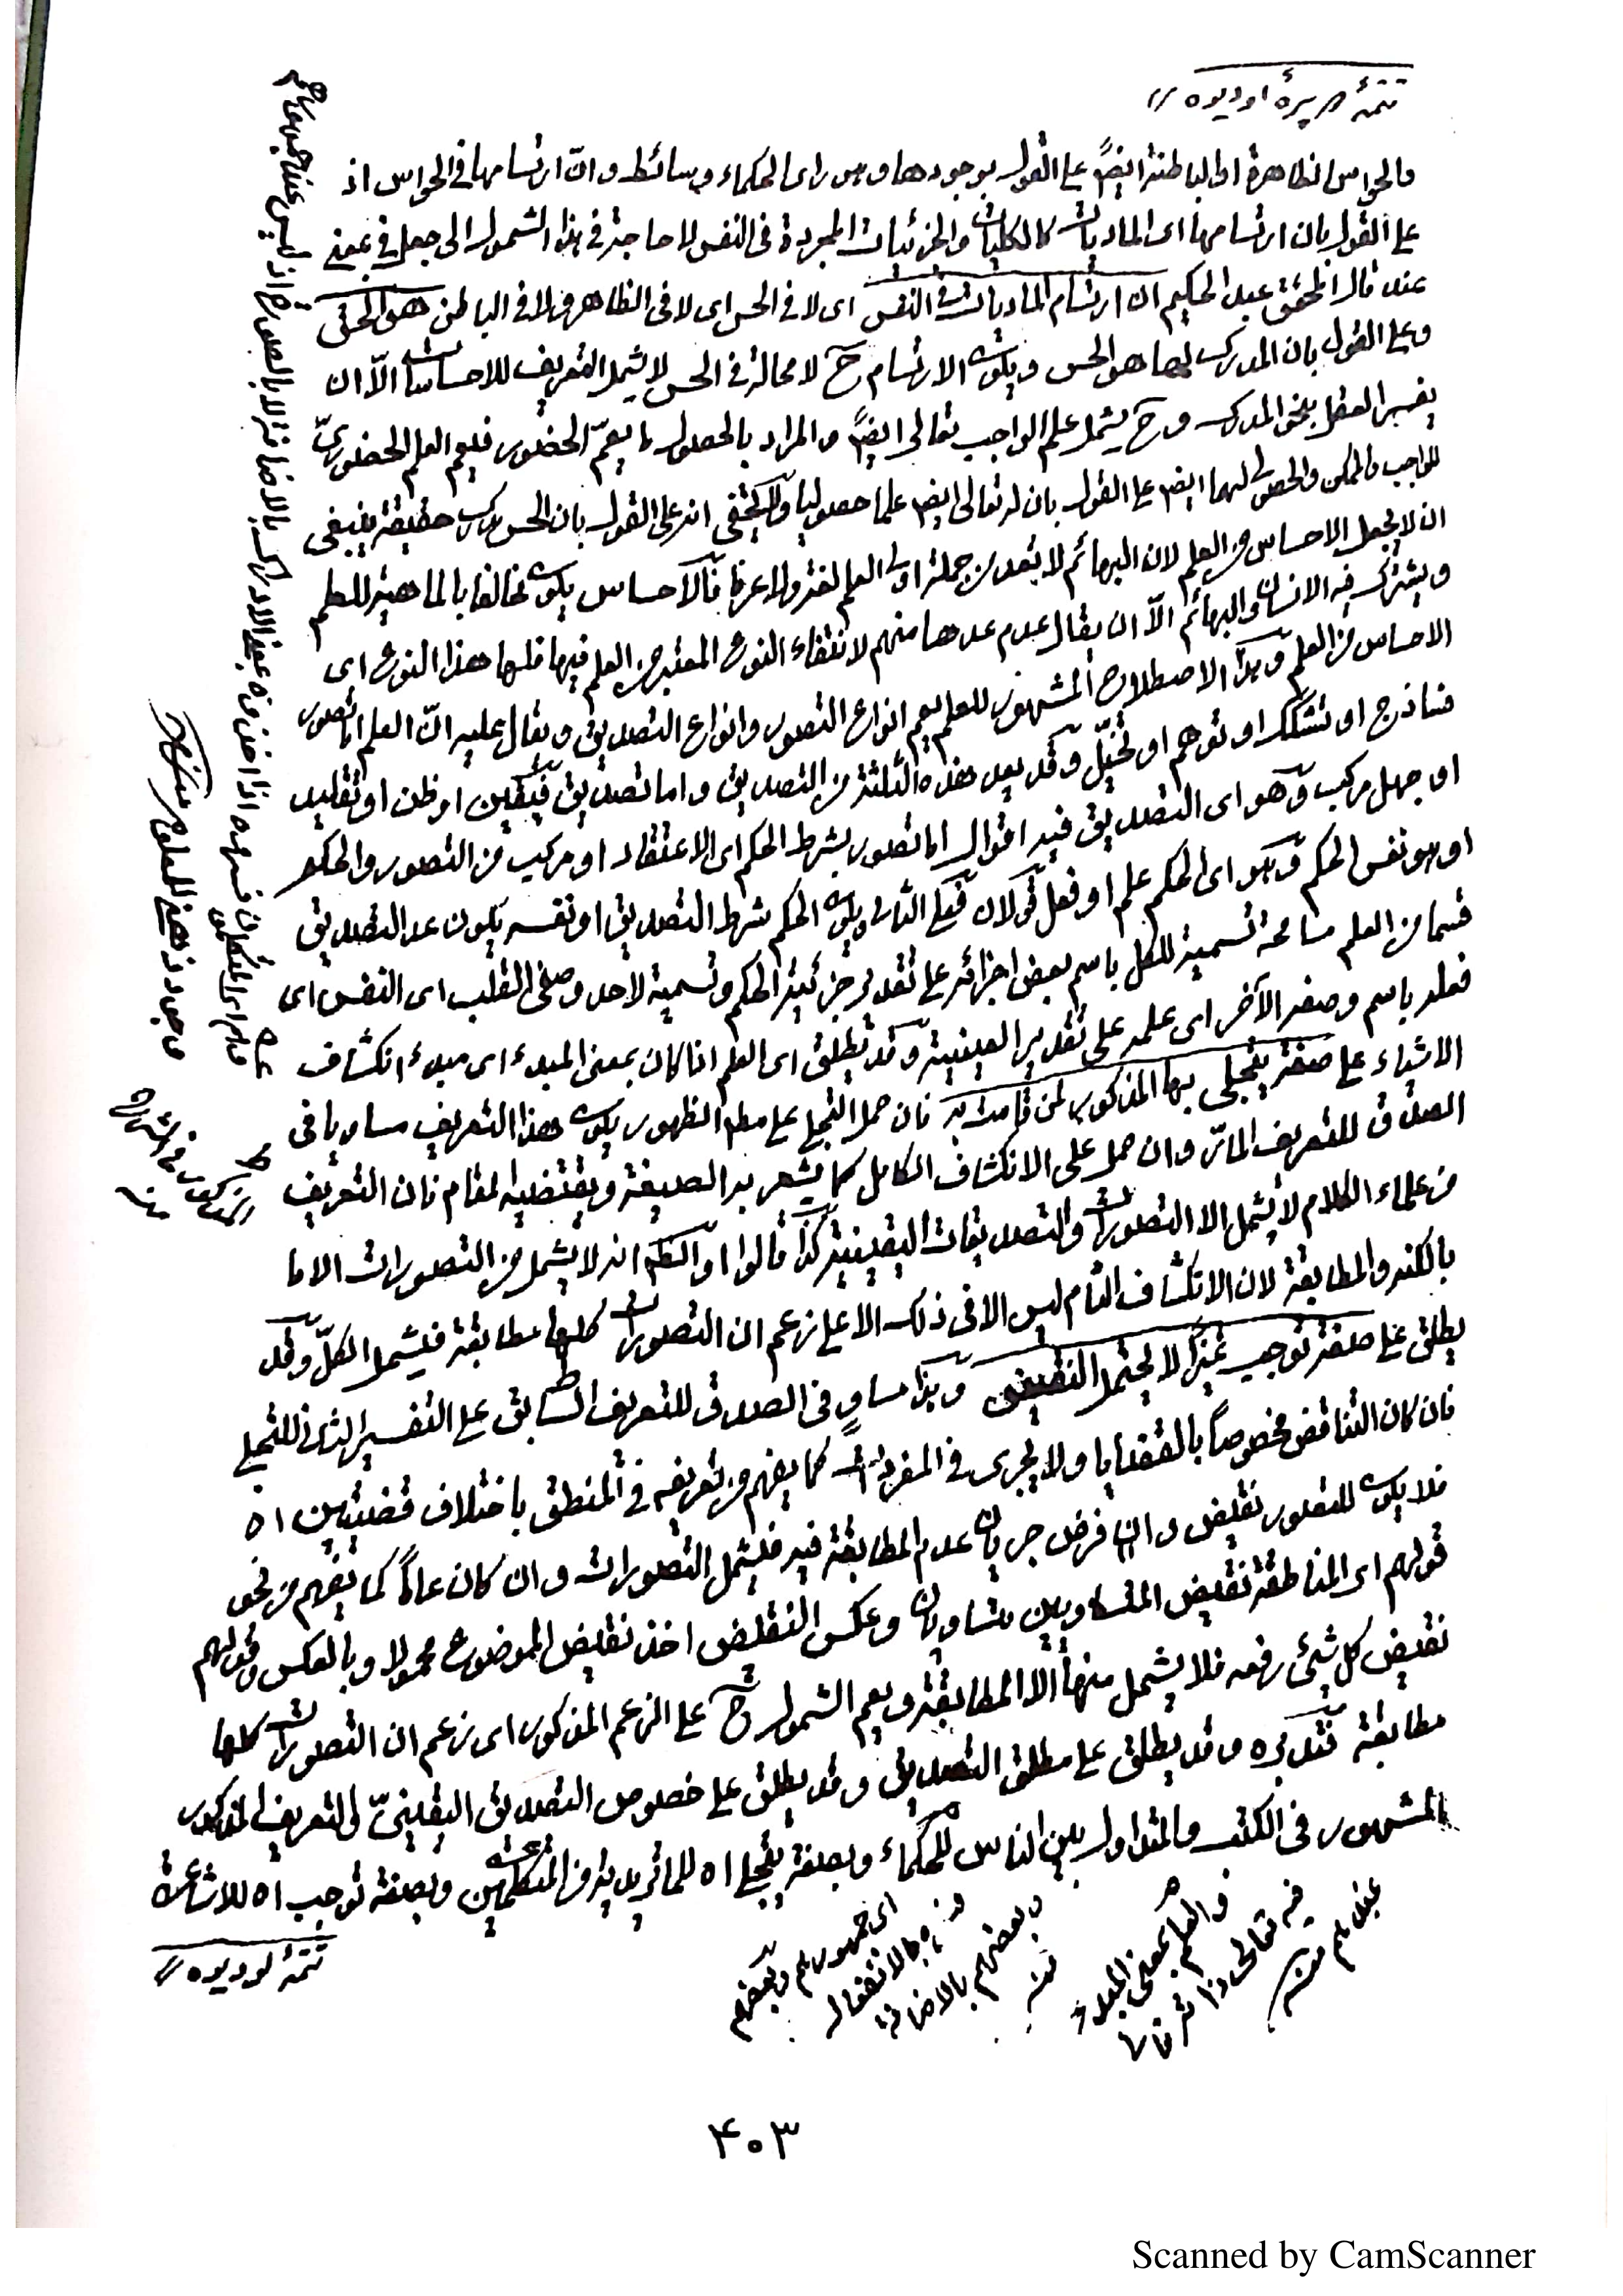 تتمهٔ هر پرهٔ اودیوه //
والحواس الظاهرة او الباطنة ايضً على القول بوجودها وهو راى الحكماء وسائط وانّ ارتسامها فى الحواس اذ
على القول بان ارتسامها اى الماديات كالكليات والجزئيات المجردة فى النفس لا حاجة فى هذا الشمول الى جعل فى بمعنى
عند قال المحقق عبد الحكيم ان ارتسام الماديات فى النفس اى لا فى الحس اى لا فى الظاهر ولا فى الباطن هو الحق
وعلى القول بان المدرك لها هو الحس ويكون الارتسام ح لا محالة فى الحس لا يشمل التعريف للاحساسات الّا ان
يفسر العقل بنحو المدرك وح يشمل علم الواجب تعالى ايضً والمراد بالحصول ما يعمّ الحضور فيعم العلم الحضورىّ
للواجب والممكن والحصولى لهما ايض على القول بان له تعالى ايض علما حصوليا ولا يخفى انه على القول بان الحس مدرك حقيقة ينبغى
ان لا يجعل الاحساس من العلم لان البهائم لا تعد من جملة اولى العلم لغة ولا عرفا فالاحساس يكون مخالفا بالماهية للعلم
ويشترك فيه الانسان والبهائم الّا ان يقال عدم عدها منهم لانتفاء النوع المعتبر من العلم فيها فلها هذا النوع اى
الاحساس من العلم وهذا الاصطلاح المشهور للعلم يعم انواع التصور وانواع التصديق ويقال عليه انّ العلم اما تصور
فساذج او تشكك او توهم او تخيّل وقد يعد هذه الثلثة من التصديق واما تصديق فيقين او ظن او تقليد
او جهل مركب وهو اى التصديق فيه اقوال اما تصور بشرط الحكم اى الاعتقاد او مركب من التصور والحكم
او هو نفس الحكم وهو اى الحكم علم او فعل قولان فعلى الثانى ويكون الحكم شرط التصديق او نفسه يكون عد التصديق
قسما من العلم مسامحة تسمية للكل باسم بعض اجزائه على تقدير جزئية الحكم وتسمية لاحد وصفى القلب اى النفس اى
فعله باسم وصفه الآخر اى علمه على تقدير العينية وقد يطلق اى العلم اذا كان بمعنى المبدء اى مبدء انكشاف
الاشياء على صفة يتجلى بها المذكور لمن قامت به فان حمل التجلى على مطلق الظهور يكون هذا التعريف مساويا فى
الصدق للتعريف المارّ وان حمل على الانكشاف الكامل كما يشعر به الصيغة ويقتضيه المقام فان التعريف
من علماء الكلام لا يشمل الا التصورات والتصديقات اليقينية كذا قالوا والظ انه لا يشمل من التصورات الا ما
بالكنه والمطابقة لان الانكشاف التام ليس الا فى ذلك الا على زعم ان التصورات كلها مطابقة فيشمل الكلّ وقد
يطلق على صفة توجب تميزًا لا يحتمل النقيض وهذا مساوٍ فى الصدق للتعريف السابق على التفسير الثانى للتجلى
فان كان التناقض مخصوصًا بالقضايا ولا يجرى فى المفردات كما يفهم من تعريفه فى المنطق باختلاف قضيتين اه
فلا يكون للتصور نقيض وان فرض جريان عدم المطابقة فيه فيشمل التصورات وان كان عامًا كما يفهم من نحو
قولهم اى المناطقة نقيض المتساويين متساويان وعكس النقيض اخذ نقيض الموضوع محمولا وبالعكس وقولهم
نقيض كل شئ رفعه فلا يشمل منها الّا المطابقة ويعم الشمول ح على الزعم المذكور اى زعم ان التصورات كلها
مطابقة فتدبره وقد يطلق على مطلق التصديق وقد يطلق على خصوص التصديق اليقينىّ والتعريف المذكور
المشهور فى الكتب والمتداول بين الناس للحكماء وبصفة يتجلى اه للماتريدية من المتكلمين وبصفة توجب اه للاشاعرة
تتمهٔ لودیوه //
اى جمهورهم وبعضهم
بالانفعال
وبعضهم بالاضافة
منه
والعلم بمعنى المبدء
فيه تعالى ذاته
عندهم منه
٤٠٣
Scanned by CamScanner